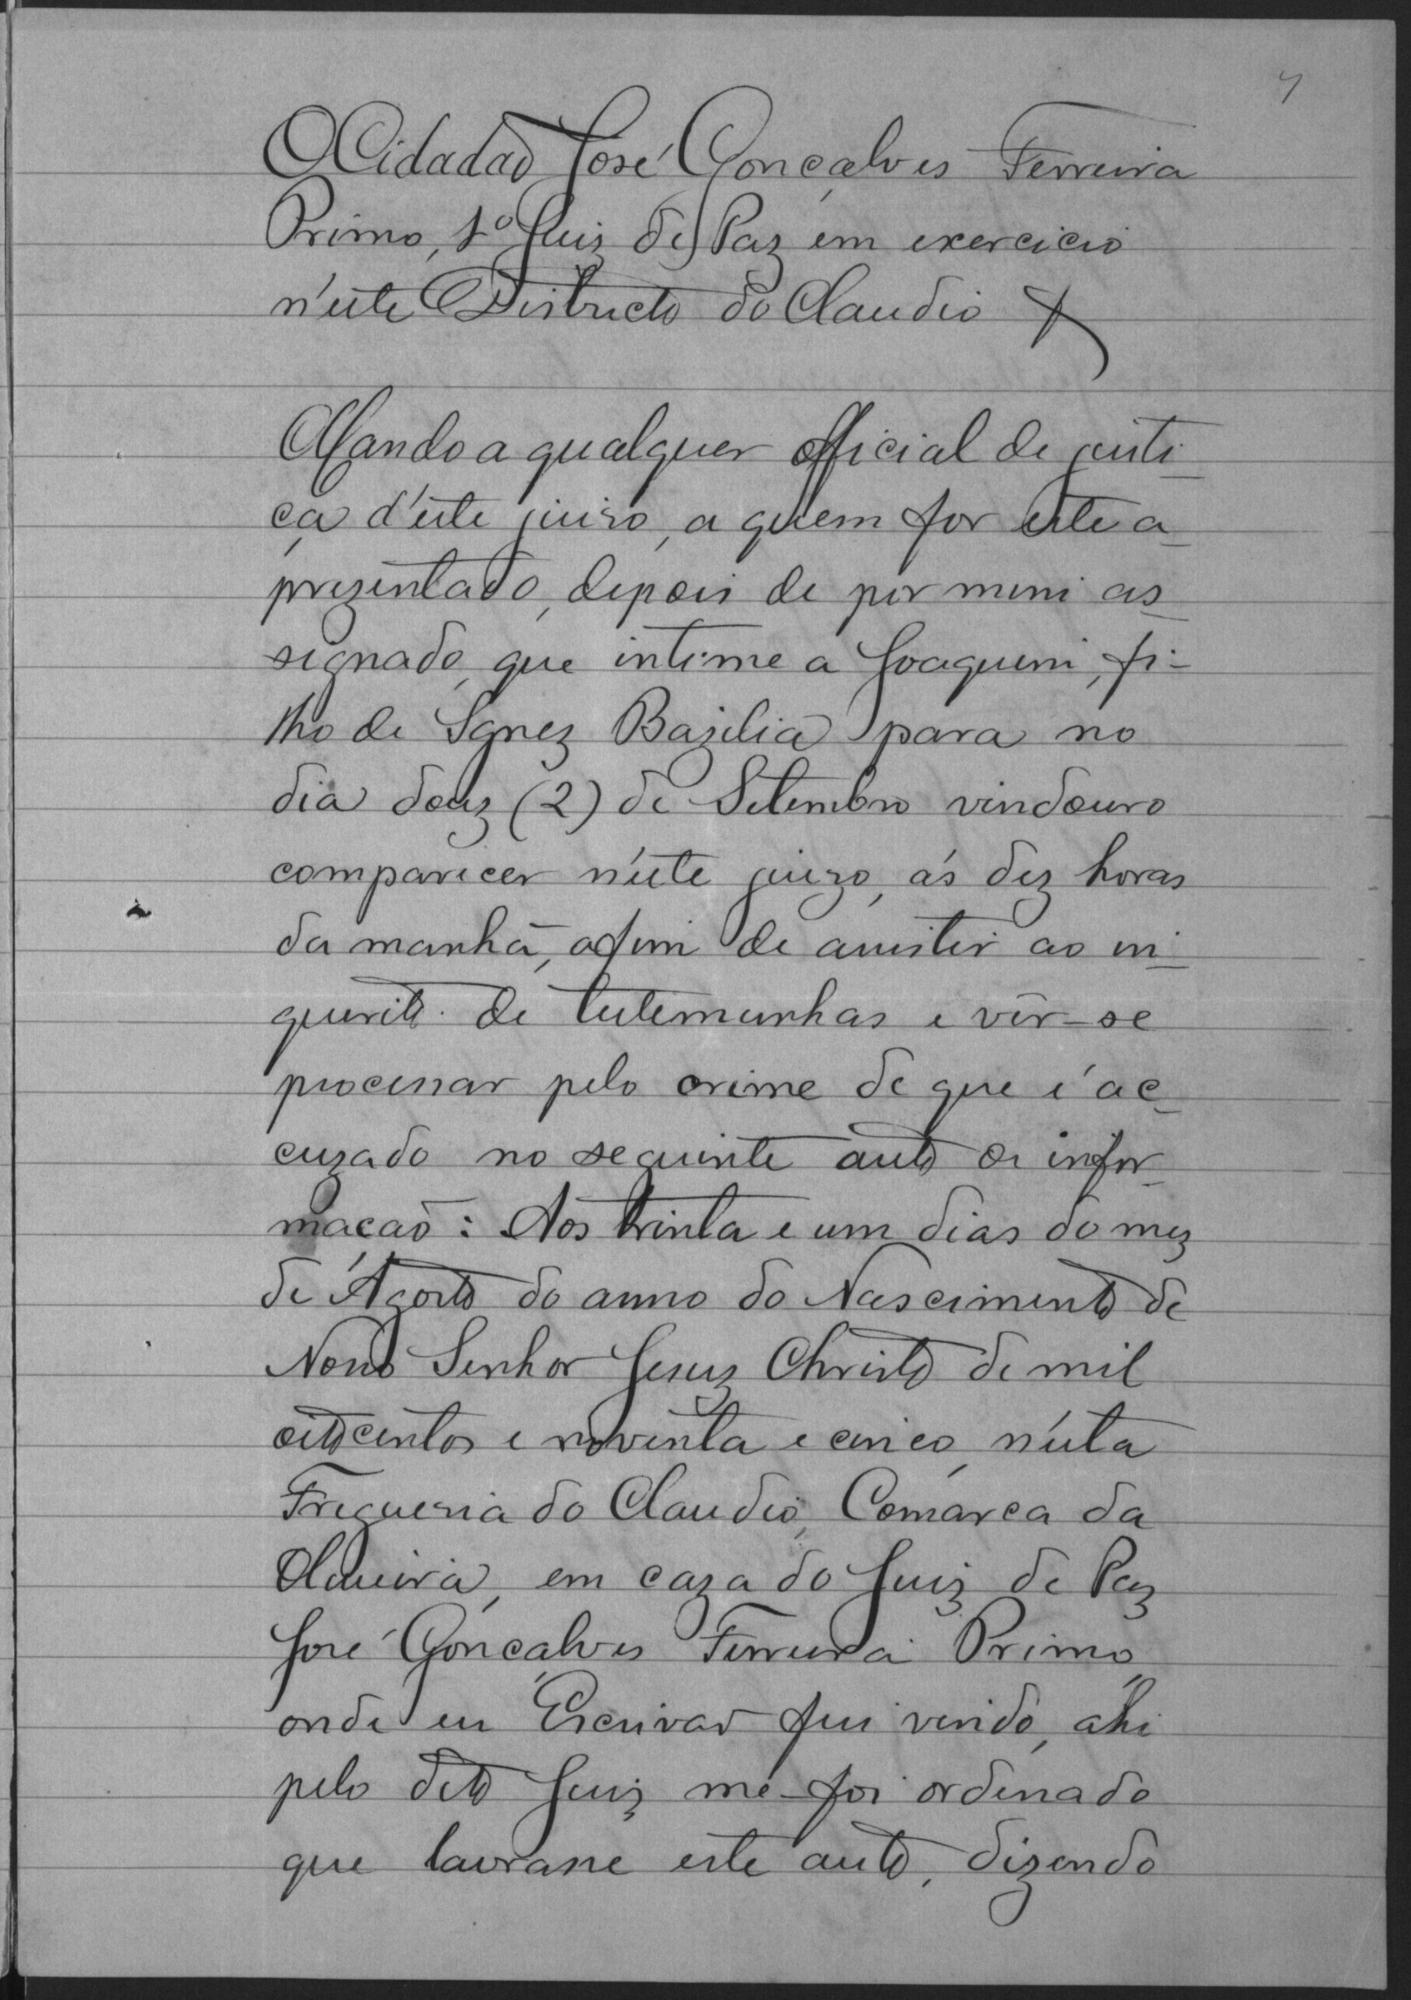 7
O Cidadão José Gonçalves Ferreira
Primo, 1º Juiz de Paz em exercicio
n'este Districto do Claudio
Mando a qualquer official de justi-
ça d'este juiso, a quem for este a-
prezentado, depois de por mim as-
signado, que intime a Joaquim, fi-
lho de Ignez Bazilia para no
dia douz (2) de Setembro vindouro
comparecer n'este juizo, ás dez horas
da manhã, afim de assistir ao in-
querito de testemunhas e vêr-se
processar pelo crime de que é ac-
cuzado no seguinte auto de infor-
mação: Aos trinta e um dias do mez
de Agosto do anno do Nascimento de
Nosso Senhor Jesuz Christo de mil
oitocentos e noventa e cinco, n'esta
Freguesia do Claudio, Comarca da
Oliveira, em caza do Juiz de Paz
José Gonçalves Ferreira Primo,
onde eu Escrivão fui vindo, ahi
pelo dito Juiz me-foi ordenado
que lavrasse este auto, dizendo